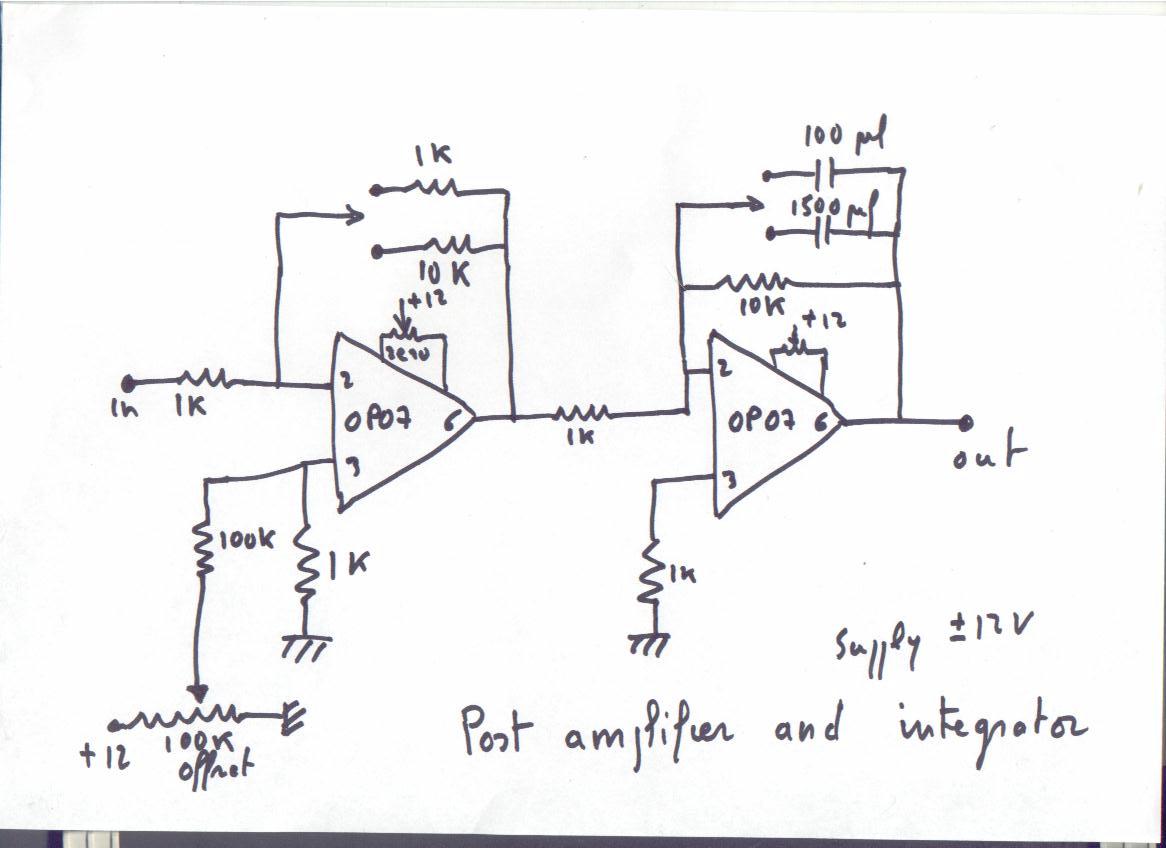 100 µf
1K
1500 µf
10K
10K
+12
+12
zero
2
2
OP07
6
OP07
6
In
1K
1K
out
3
3
100K
1K
1K
Supply ±12V
+12
100K
offset
Post amplifier and integrator